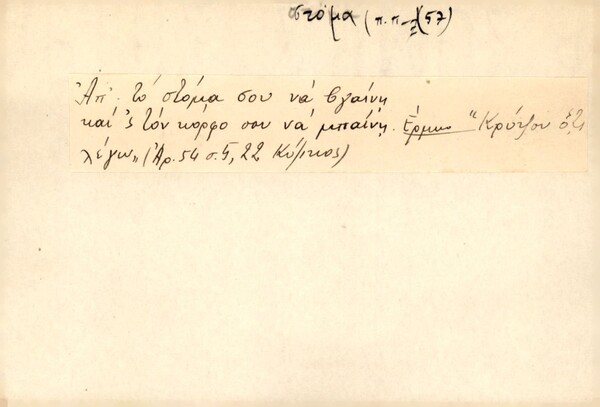 στόμα (π.π-2)(57)
Ἀπ' τό στόμα σου νά βγαίνῃ
καί 's τόν κόρφο σου νά μπαίνῃ. "Κρύψου ὅ,τι
λέγω" (Ἀρ. 54 σ. 5, 22 Κύζικος)